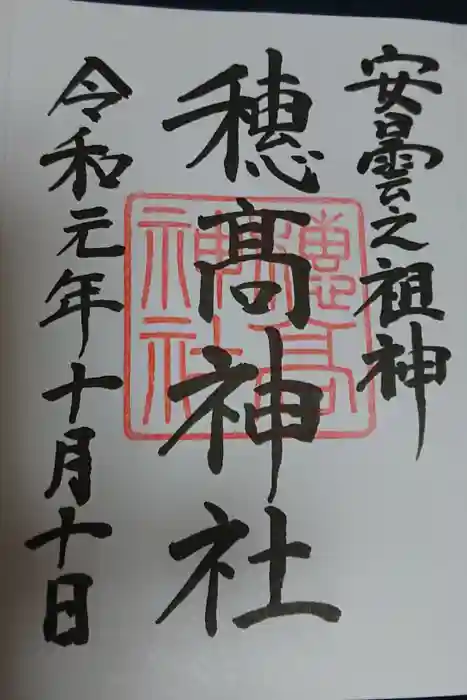 安曇之祖神
穂髙神社
穂高神社
令和元年十月十日